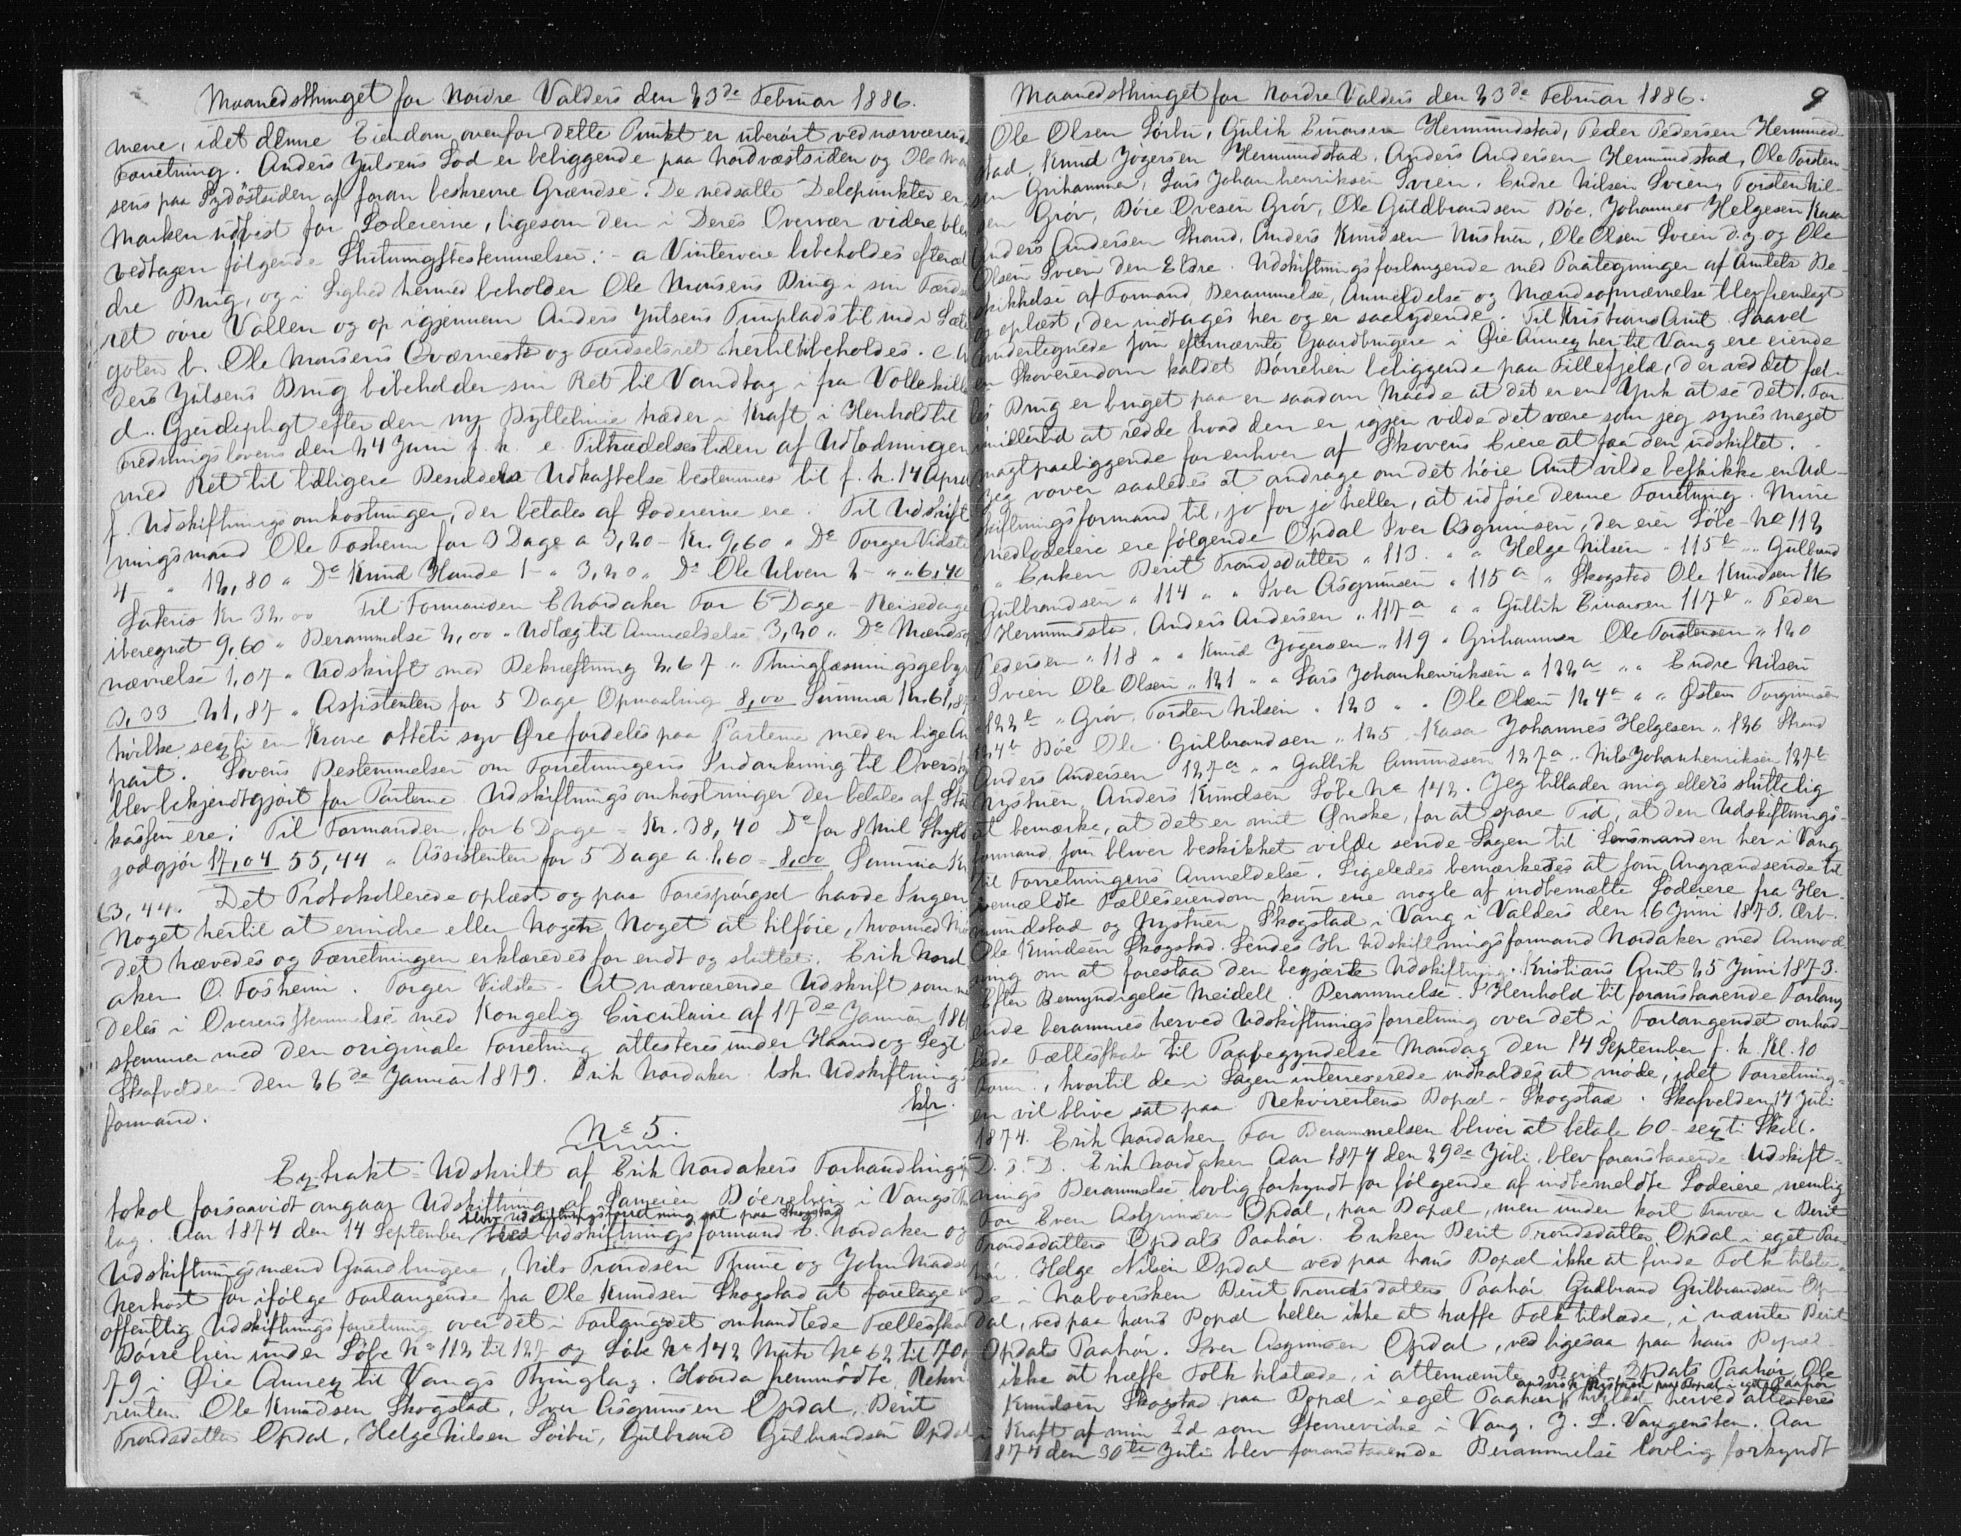 Maanedsthinget for Nordre Valders den 23de Februar 1886.
mene, idet denne Eiendom ovenfor dette Punkt er uberørt ved nærværende
Forretning. Anders Julsens Lod er beliggende paa Nordvæstsiden og Ole Mon
sens paa Sydöstsiden af foran beskrevne Grændse. De nedsatte Delepunkter er
Marken udvist for Lodeierne, ligesom den i Deres Overvær videre blev
vedtagen følgende Slutningsbestemmelser: - a Vinterveie bibeholdes efter æl
dre Brug, og i Lighed hermed beholder Ole Monsens Brug i sin Færds
ret övre Vollen og op igjennem Anders Julsens Tunplads til ind i
goten b. Ole Monsens Qværnested og Færdselsret hertil bibeholdes. c. An
ders Julsens Brug bibeholder sin Ret til Vandtag i fra
d. Gjerdepligt efter den ny Byttelinie træder i Kraft i Henhold til
fredningslovens den 24 Juni f. k. e. Tiltrædelsestiden af Udlodningen
med Ret til tidligere Besiddels Udkastelse bestemmes til f. k. 14 April
f. Udskiftningsomkostninger, der betales af Lodeierne ere. Til Udskift
ningsmand Ole Fosheim for 3 Dage a 3,20 - Kr. 9,60 " Do Torger Vidste
4 " 12,80 " Do Knud Hande 1 - " 3,20 " Do Ole Ulven 2 - " " 6,40
Lateris Kr 32,00 Til Formanden E Nordaker For 6 Dage - Reisedage
iberegnet 9,60 " Berammelse 2,00 " Udlæg til Anmældelse 3,20 " Do Mændso
nævnelse 1,07 " Udskrift med Bekræftning 2,67 " Thinglæsningsgebyr
3,33 21,87 " Assistenten for 5 Dage Opmaaling 8,00 Summa Kr. 61,87
hvilke sexti en Krone otteti syv Øre fordeles paa Parterne med en ligeln
part. Lovens Bestemmelser om Forretningens Indankning til Oversk
blev bekjendtgjort for Parterne. Udskiftningsomkostninger der betales af Sta
kassen ere: Til Formanden for 6 Dage = Kr. 38,40 Do for 8 Mil Skyds
godgjör 17,04 55,44 " Assistenten for 5 Dage a 1,60 = 8,00 Summa Kr
63,44. Det Protokollerede oplæst og paa Forespørgsel havde Ingen
Noget hertil at erindre eller Noget at tilföie, hvormed
det hævedes og Forretningen erklæredes for endt og sluttet. Erik Nord
aker O. Fosheim. Torger Vidste - At nærværende Udskrift som
deles i Overensstemmelse med Kongelig Circulaire af 17de Januar 186
stemmer med den originale Forretning attesteres under Haand og Segl
Skafvelden den 26de Januar 1879. Erik Nordaker Udskiftnings
formand.
No 5.
Extrakt = Udskrift af Erik Nordakers Forhandlings
tokol forsaavidt angaar Udskiftning af Sameien Böerehen i Vangs
lag. Aar 1874 den 14 September blev udskiftningsforretning sat paa Skogstad ved Udskiftningsformand E. Nordaker og
Udskiftningsmænd Gaardbrugere, Nils Trondsen Thune og John Madse
Nerhöst for ifölge Forlangende fra Ole Knudsen Skogstad at foretage
offentlig Udskiftningsforretning over det i Forlangdet omhandlede Fællesska
Börrehen under Löbe No 112 til 127 og Löbe No 142 Matr No 62 til 70
79 i Øie Annex til Vangs Thinglag. Hvorda fremmødte Rekvi
renten Ole Knudsen Skogstad, Iver Asgrimsen Opdal, Berit
Trondsdatter Opdal, Helge Nilsen Sörbu, Gulbrand Gulbrandsen Opdal
Maanedsthinget for Nordre Valders den 23de Februar 1886.
9
Ole Olsen Sörbu, Gulik Einarsen Hermundstad, Peder Pedersen Hermund-
stad, Knud Jögersen Hermundstad, Anders Andersen Hermundstad, Ole Torsten
sen Grihammer, Lars Johanhenriksen Sveen, Endre Nilsen Sveen, Torsten Nil-
sen Gröv, Böie Ovesen Gröv, Ole Guldbrandsen Böe, Johannes Helgesen Kasa
Anders Andersen Strand, Anders Knudsen Nystuen, Ole Olsen Sveen d.y. og Ole
Olsen Sveen den Eldre. Udskiftningsforlangende med Paategninger af Amtets Be-
skikkelse af Formand, Berammelse, Anmeldelse og Mændsopnævnelse blev fremlagt
og oplæst, der indtages her og er saalydende. Til Kristians Amt. Saavel
undertegnede som efternævnte Gaardbrugere i Øie Annex her til Vang ere eiende
en Skoveiendom kaldet Börrehen beliggende paa Fillefjeld, der ved det fæl-
les Brug er bruget paa en saadan Maade at det er en Ynk at se det. For
imidlertid at redde hvad den er igjen vilde det være som jeg synes meget
magtpaaliggende for enhver af Skovens Eiere at faa den udskiftet.
Jeg vover saaledes at andrage om det höie Amt vilde beskikke en Ud-
skiftningsformand til, jo for jo heller, at udföre denne Forretning. Mine
medlodeiere ere følgende Opdal Iver Asgrimsen, der eier Löbe No 112
" Enken Berit Trondsdatter " 113. " " Helge Nilsen " 115b " " Gulbrand
Gulbrandsen " 114 " " Iver Asgrimsen " 115a " Skogstad Ole Knudsen 116
Hermundsta. Anders Andersen " 117a " " Gullik Einarsen 117b " Peder
Pedersen " 118 " " Knud Jögersen " 119 " Grihammer Ole Torstensen " 120
Sveen Ole Olsen " 121 " " Lars Johanhenriksen " 122a " " Endre Nilsen
122b " Gröv Torsten Nilsen " 123 " " Ole Olsen 124a " " Østen Torgrimsen
124b Böe Ole Gulbrandsen " 125 Kasa Johannes Helgesen " 126 Strand
Anders Andersen 127a " " Gullik Amundsen 127a " Nils Johanhenriksen 127b
Nystuen Anders Knudsen Löbe No 142. Jeg tillader mig ellers sluttelig
at bemærke, at det er mit Ønske, for at spare Tid, at den Udskiftnings-
formand som bliver beskikket vilde sende Sagen til Lensmanden her i Vang
til Forretningens Anmeldelse. Ligeledes bemærkedes at som Angrændsende til
bemældte Fælleseiendom kun ere nogle af indbemeldte Lodeiere fra Her-
mundstad og Nystuen Skogstad i Vang i Valders den 16 Juni 1873. Ærb-.
Ole Knudsen Skogstad. Sendes Hr Udskiftningsformand Nordaker med Anmod
ning om at forestaa den begjærte Udskiftning. Kristians Amt 25 Juni 1873.
Efter Bemyndigelse Meidell. Berammelse. I Henhold til foranstaaende Forlang
ende berammes herved Udskiftningsforretning over det i Forlangendet omhand-
lede Fællesskab til Paabegyndelse Mandag den 14 September f. k. Kl. 10
Form., hvortil de i Sagen interesserede indkaldes at møde, idet Forretning-
en vil blive sat paa Rekvirentens Bopæl - Skogstad. Skafvelden 17 Juli
1874. Erik Nordaker. For Berammelsen bliver at betale 60 - sexti Skill.
D. S. D. Erik Nordaker Aar 1874 den 29de Juli blev foranstaaende Udskift-
nings Berammelse lovlig forkyndt for følgende af indbemeldte Lodeiere nemlig
For Even Asgrimsen Opdal, paa Bopæl, men under kort havær i Berit
Trondsdatters Opdals Paahör. Enken Berit Trondsdatter Opdal i eget Paa
hör. Helge Nilsen Opdal ved paa hans Bopæl ikke at finde Folk tilste
de i Naboersken Berit Trondsdatters Paahör Gulbrand Gulbrandsen Op-
dal, ved paa hans Bopæl heller ikke at træffe Folk tilstede, i nævnte Berit
Opdals Paahör. Iver Asgrimsen Opdal, ved ligesaa paa hans Bopæl
ikke at træffe Folk tilstede, i atternævnte Berit Opdals Paahör, Ole
Knudsen Skogstad paa Bopæl i eget Paahör, Anders K. Nystuen paa Bopæl i eget Paahör hvilket herved attesteres
i Kraft af min Ed som Stevnevidne i Vang. J. L. Vangensten. Aar
1874 den 30te Juli blev foranstaaende Berammelse lovlig forkyndt